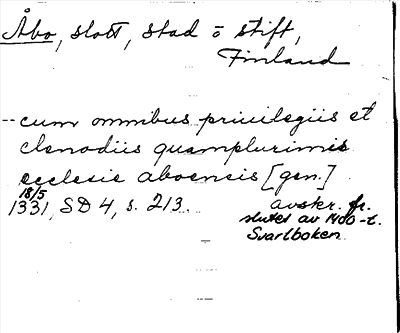 Åbo, slott, stad o stift,
Finland
-- cum omnibus priuilegiis et
clenodiis quamplurimis
ecclesie aboensis [gen.]
18/5
1331, SD 4, s. 213. avskr. fr.
slutet av 1400-t.
Svartboken.